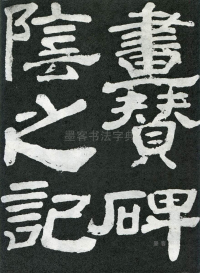 畫贊碑
陰之記
墨客书法字典